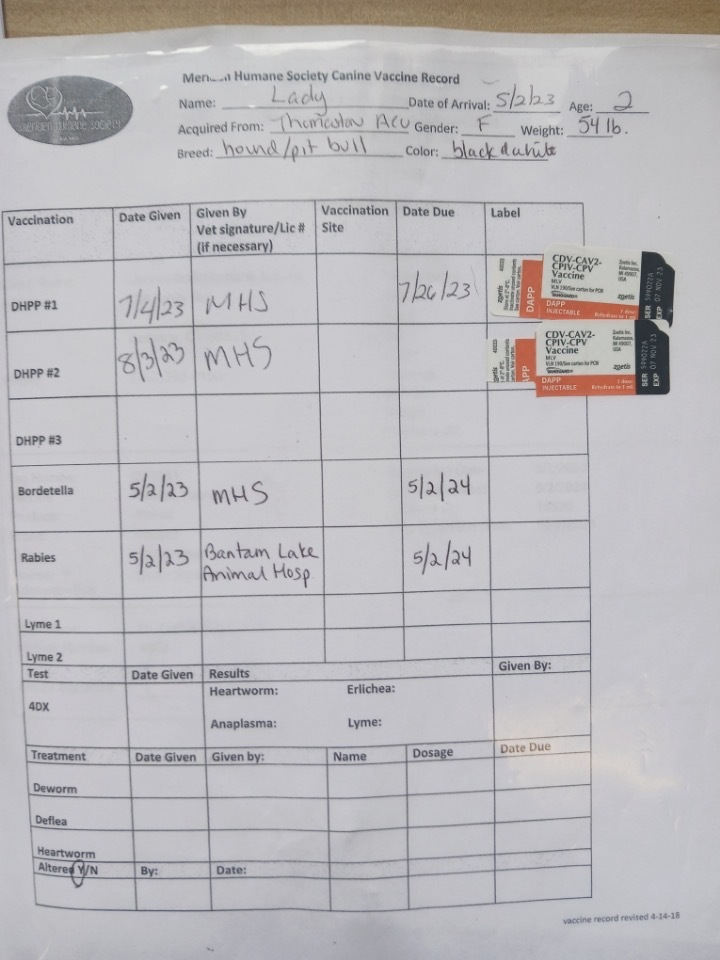 Humane Society Canine Vaccine Record
Name: Lady Date of Arrival: 5/2/23 Age: 2
Acquired From: ACO Gender: F Weight: 54 lb.
Breed: hound/pit bull Color: black & white
Vaccination Date Given Given By Vaccination Date Due Label
Vet signature/Lic # Site
(if necessary)
DHPP #1 7/4/23 MHS 7/26/23
DHPP #2 8/3/23 MHS
DHPP #3
Bordetella 5/2/23 MHS 5/2/24
Rabies 5/2/23 Bantam Lake 5/2/24
Animal Hosp.
Lyme 1
Lyme 2
Test Date Given Results Given By:
4DX Heartworm: Erlichea:
Anaplasma: Lyme:
Treatment Date Given Given by: Name Dosage Date Due
Deworm
Deflea
Heartworm
Altered Y/N By: Date:
vaccine record revised 4-14-18
zoetis
DAPP
CDV-CAV2-
CPIV-CPV
Vaccine
MLV
zoetis
DAPP
INJECTABLE
SER 599022A
EXP 07 NOV 23
CDV-CAV2-
CPIV-CPV
Vaccine
MLV
zoetis
DAPP
INJECTABLE
SER 599022A
EXP 07 NOV 23